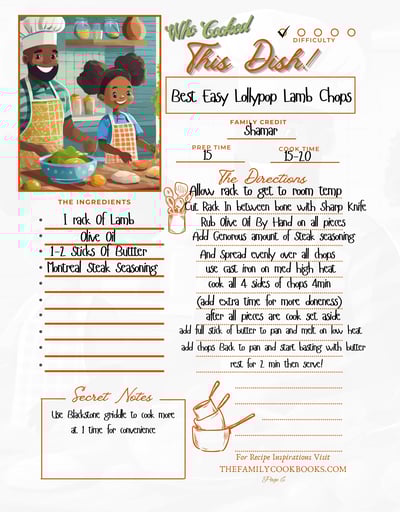 Who Cooked
This Dish!
DIFFICULTY
Best Easy Lollypop Lamb Chops
FAMILY CREDIT
Shamar
PREP TIME
15
COOK TIME
15-20
THE INGREDIENTS
1 rack Of Lamb
Olive Oil
1-2 Sticks Of Buttter
Montreal Steak Seasoning
The Directions
Allow rack to get to room temp
Cut Rack In between bone with Sharp Knife
Rub Olive Oil By Hand on all pieces
Add Generous amount of Steak seasoning
And Spread evenly over all chops
use cast iron on med high heat
cook all 4 sides of chops 4min
(add extra time for more doneness)
after all pieces are cook set aside
add full stick of butter to pan and melt on low heat
add chops Back to pan and start basting with butter
rest for 2 min then serve!
Secret Notes
Use Blackstone griddle to cook more
at 1 time for convenience
For Recipe Inspirations Visit
THEFAMILYCOOKBOOKS.COM
Page 6